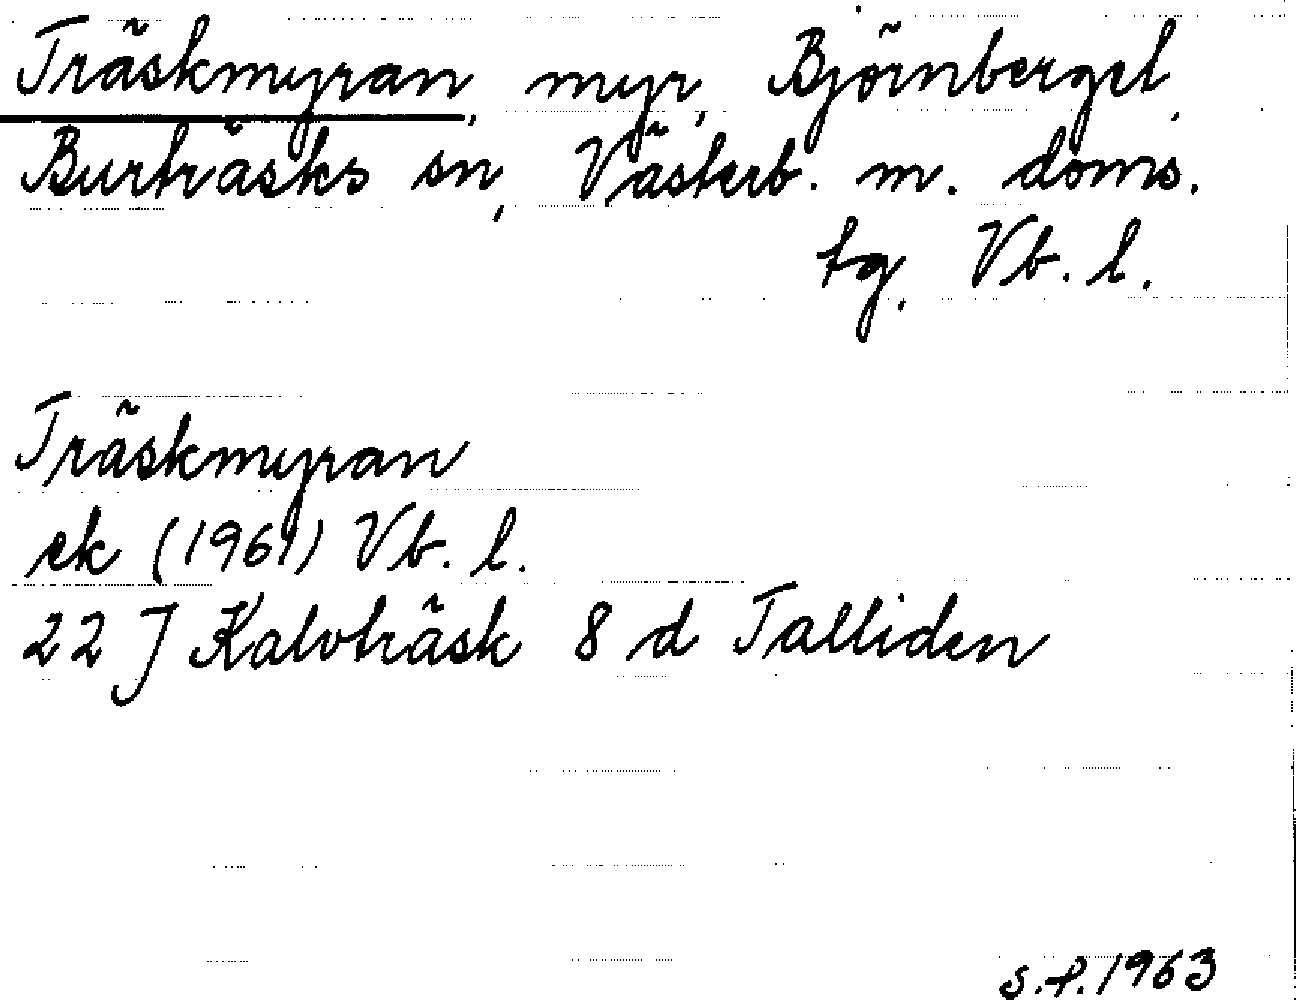 Träskmyran, myr, Björnberget,
Burträsks sn, Västerb. m. doms.
tg, Vb. l.
Träskmyran
ek (1961) Vb. l.
22 J Kalvträsk 8 d Talliden
S.P. 1963